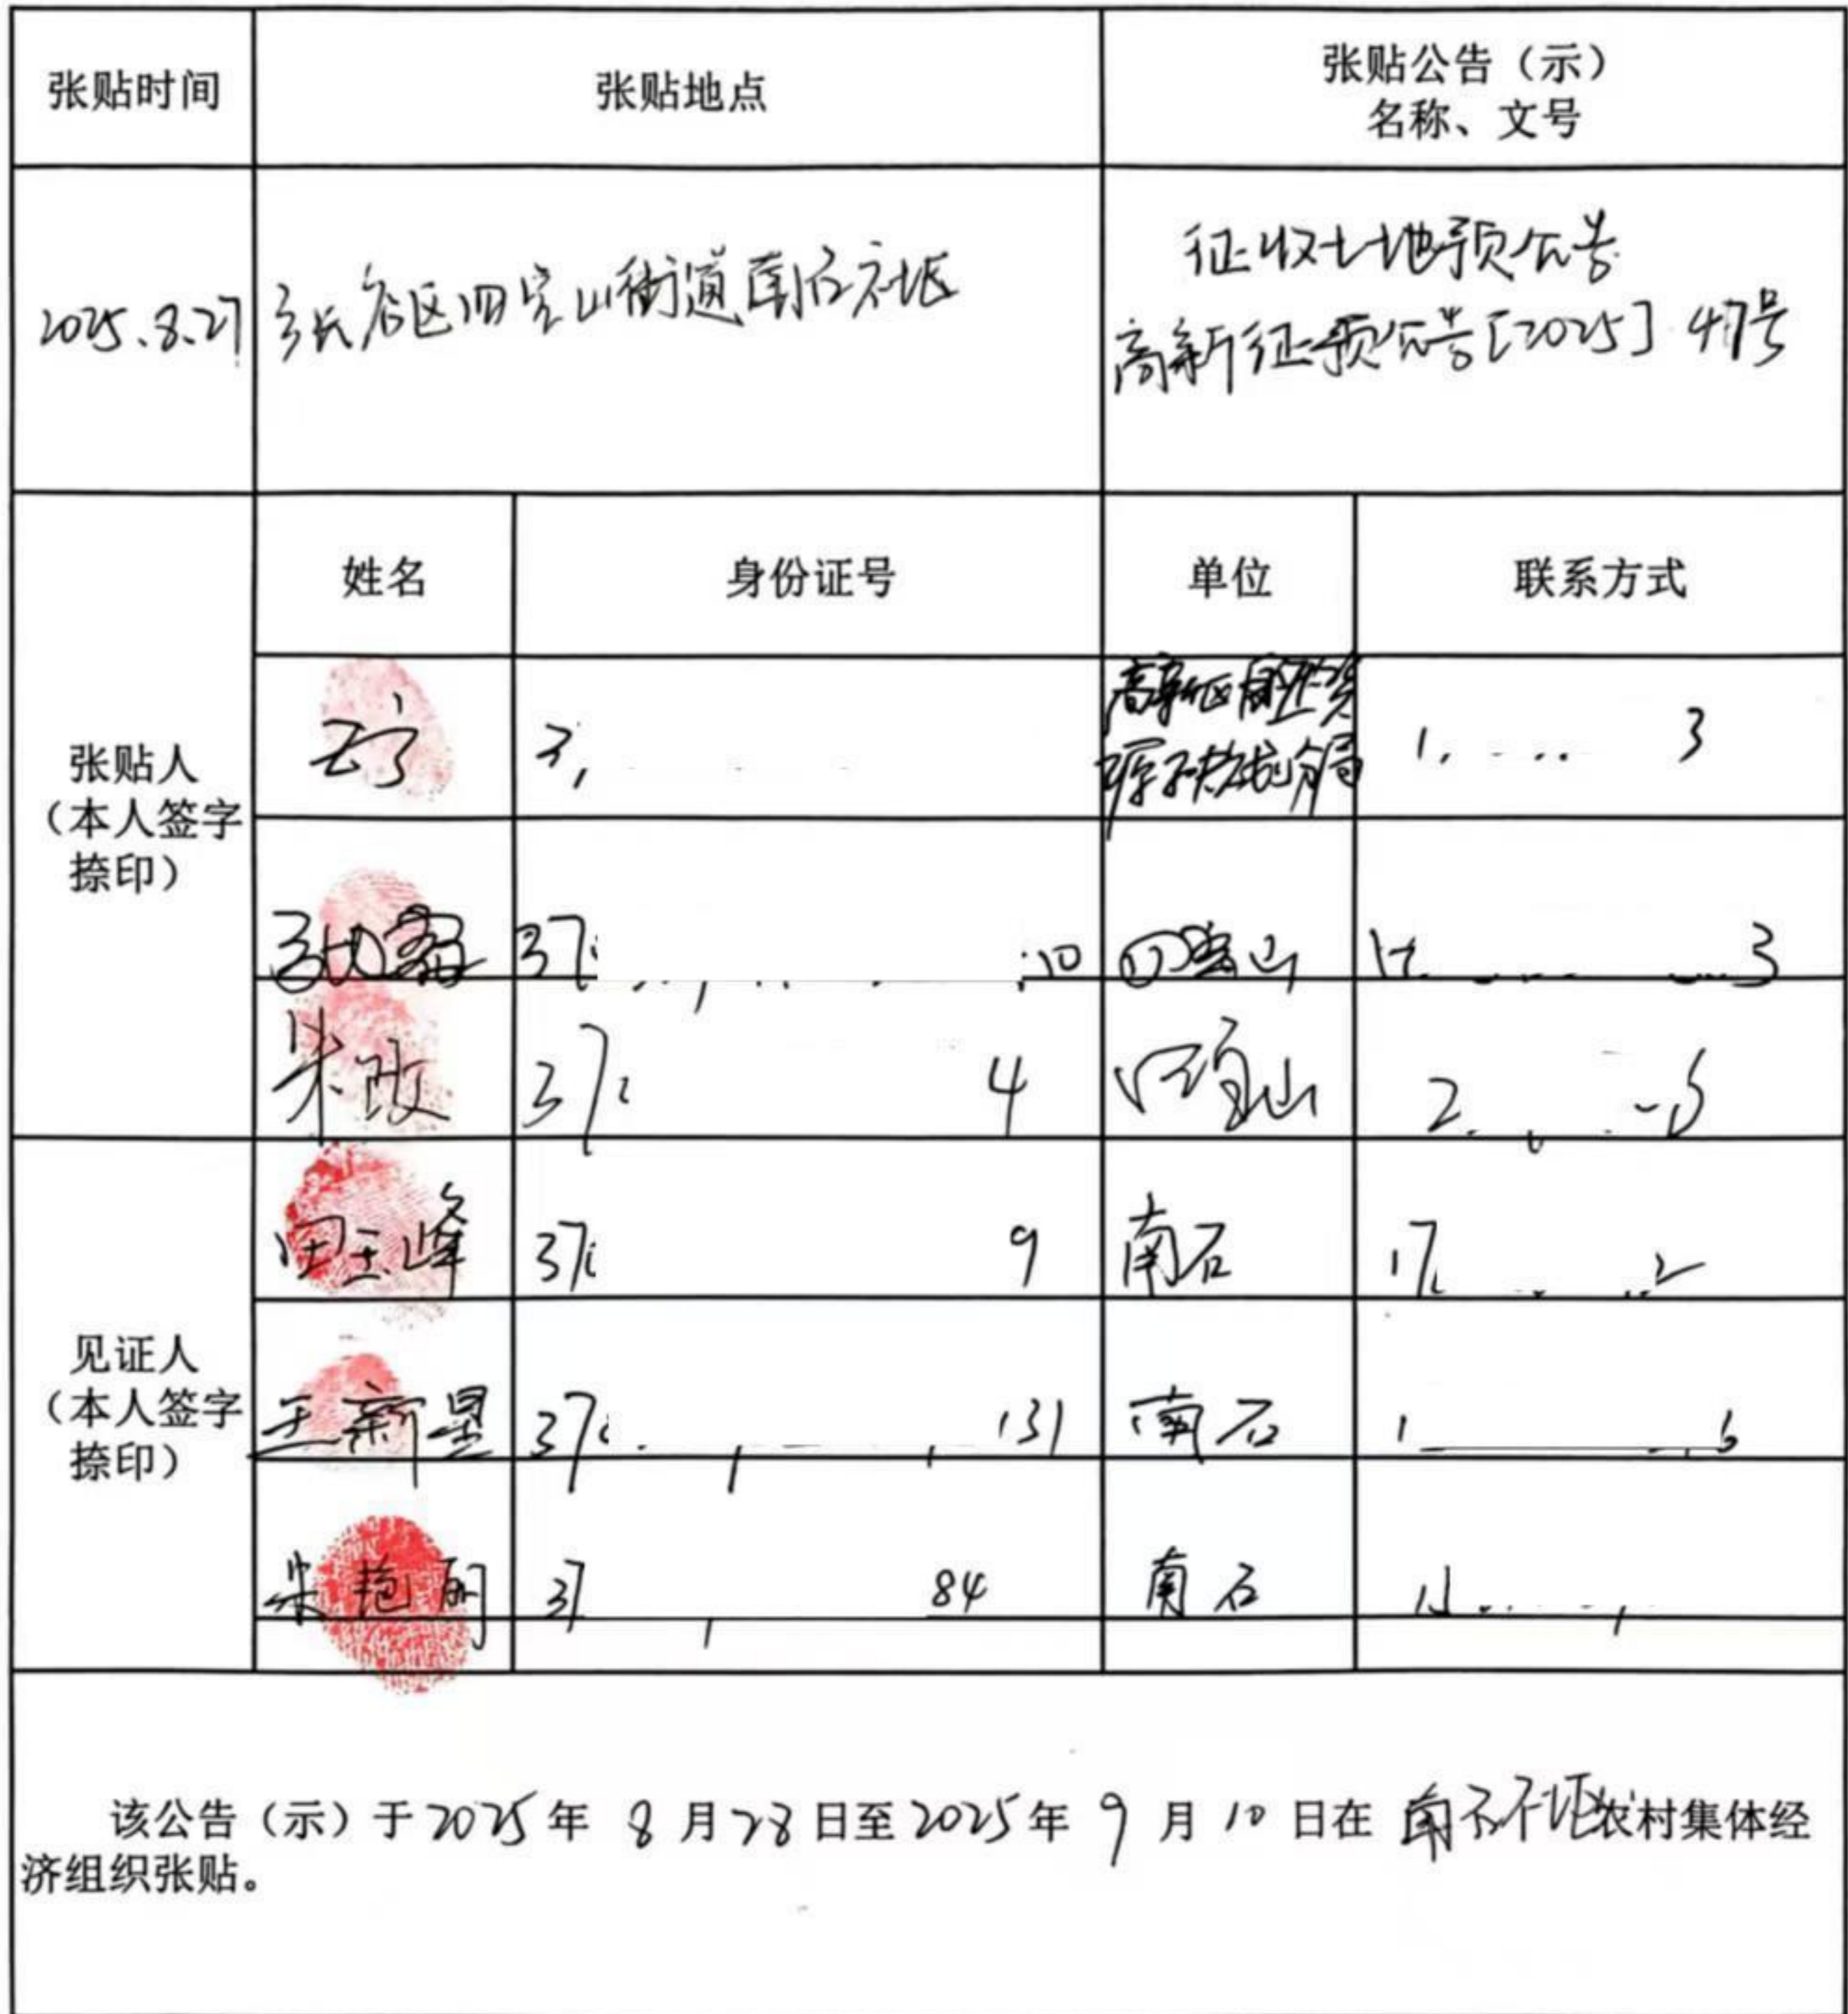 张贴时间
张贴地点
张贴公告（示）
名称、文号
2025.8.27
张店区四宝山街道南石社区
征收土地预公告
高新征预公告[2025]47号
姓名
身份证号
单位
联系方式
张贴人
（本人签字
捺印）
高新区自然资
源和规划分局
四宝山
朱政
四宝山
见证人
（本人签字
捺印）
田玉峰
南石
王新星
南石
朱艳丽
南石
该公告（示）于2025年 8 月28日至2025年 9 月 10 日在 南石社区农村集体经
济组织张贴。